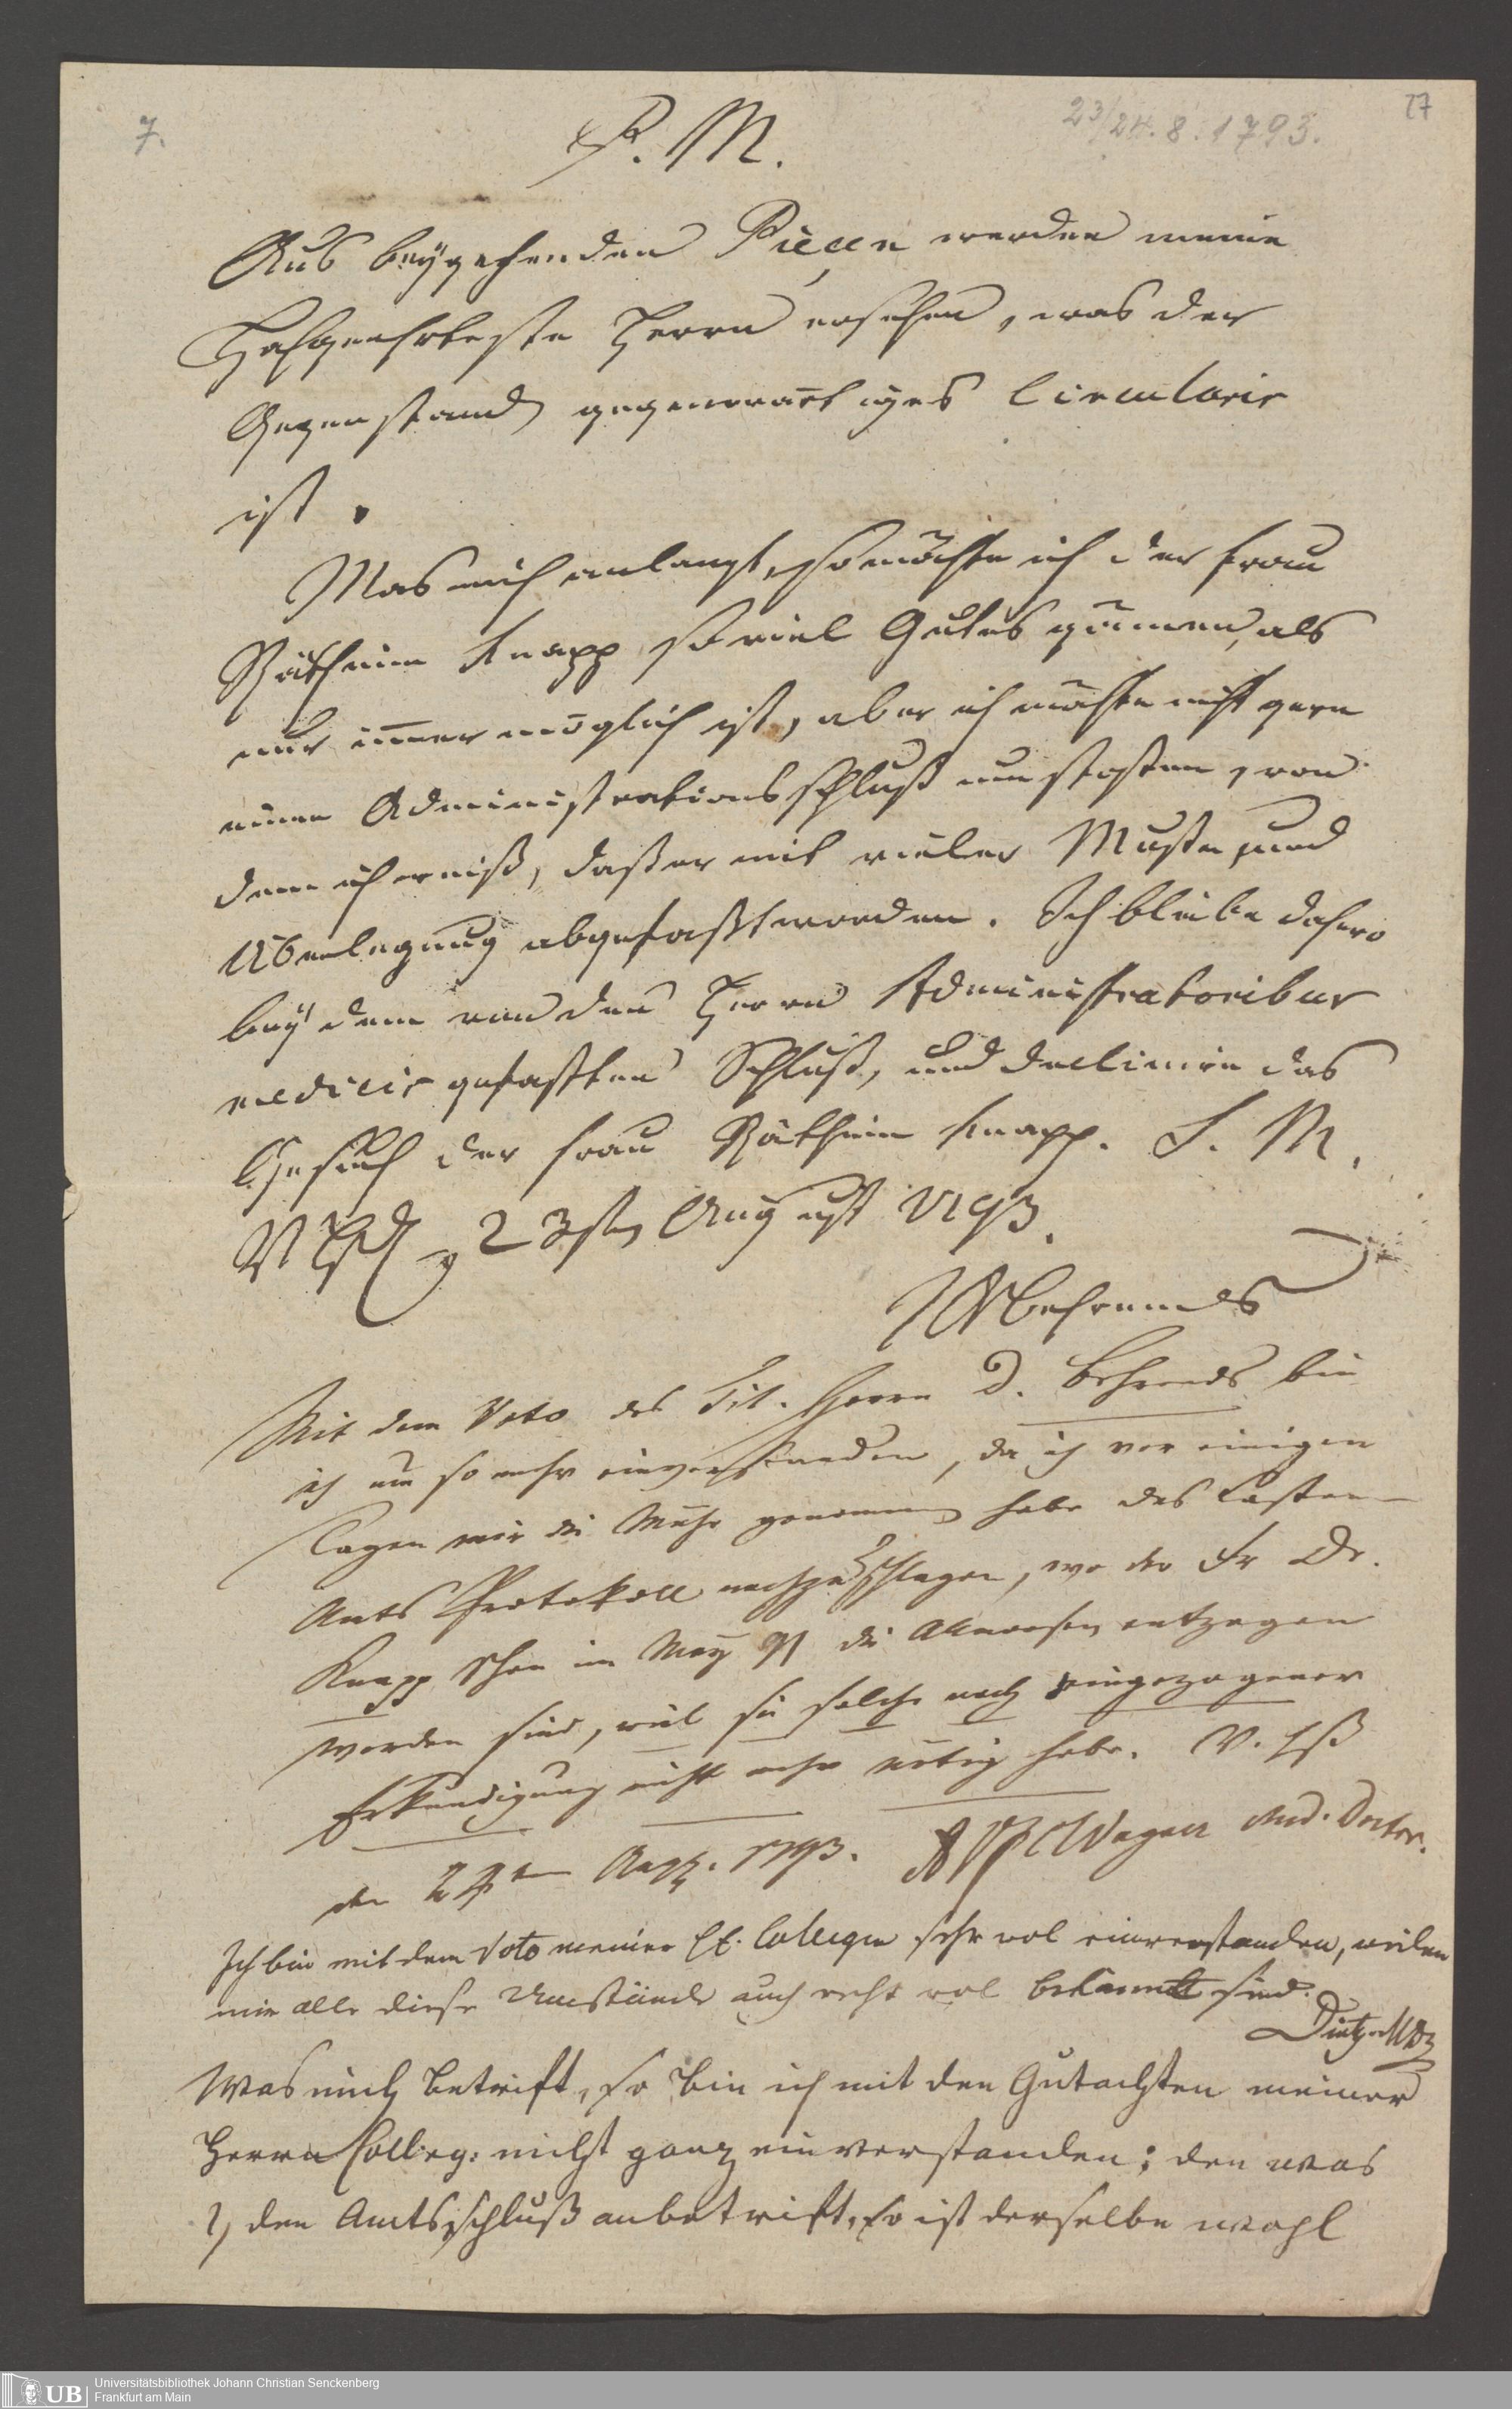 7.
P. M.
23/24. 8. 1793.
27
Aus beÿgehenden Piècen werden meine
Hochgeehrteste Herrn ersehen, was der
Gegenstand gegenwärtiges Circularis
ist.
Was mich anlangt, so möchte ich der Frau
Räthinn Knapp so viel Gutes gönnen, als
nur immer möglich ist, aber ich möchte nicht gern
einen Administrationsschluß umstoßen, von
dem ich weiß, daß er mit vieler Muße und
Überlegung abgefaßt worden. Ich bleibe dahero
beÿ dem von den Herrn Administratoribus
medicis gefaßten Schluß, und declinire das
Gesuch der Frau Räthinn Knapp. S. M.
23sten August 1793.
Behrends
Mit dem Voto des Tit. Herrn D. Behrends bin
ich um so mehr einverstanden, da ich vor einigen
Tagen mir die Mühe genommen habe das Casten
Amts Protokoll nachzuschlagen, wo der Fr Dr.
Knapp schon im Maÿ 91 die Allmosen entzogen
worden sind, weil sie solche nach eingezogener
Erkundigung nicht mehr nötig habe. V. Hß
den 24ten Aug. 1793. Wagner Med. Doctor.
Ich bin mit dem Voto meiner HE. Collegen sehr wol einverstanden, weilen
mir alle diese Umstände auch recht wol bekannt sind.
Dietz MD
Was mich betrift, so bin ich mit den Gutachten meiner
Herrn Colleg: nicht ganz einverstanden; den was
1) den Amtsschluß anbetrift, so ist derselbe wohl
UB Universitätsbibliothek Johann Christian Senckenberg
Frankfurt am Main